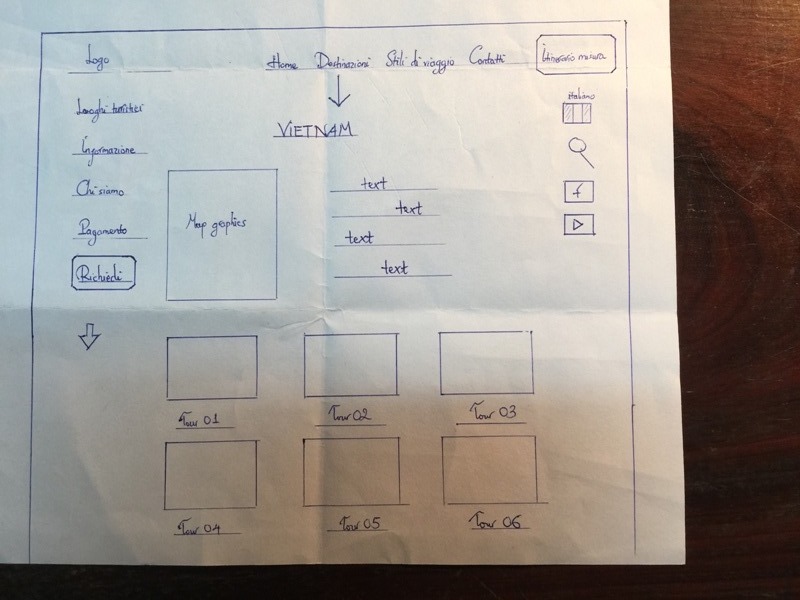 Logo
Home Destinazioni Stili di viaggio Contatti
Itinerario misura
italiano
Luoghi turistici
VIETNAM
Informazione
Chi siamo
Pagamento
Richiedi
Map graphics
text
text
text
text
f
Tour 01
Tour 02
Tour 03
Tour 04
Tour 05
Tour 06